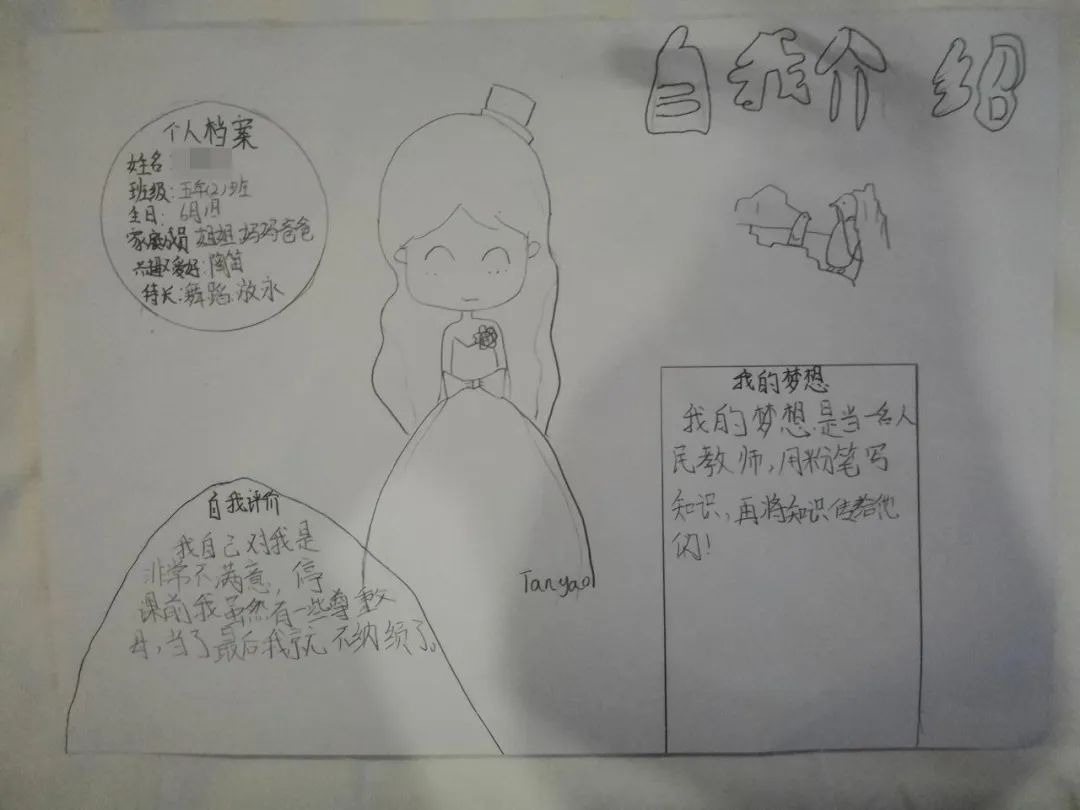 自我介绍
个人档案
姓名:
班级:五年(2)班
生日: 6月1日
家庭成员 姐姐 妈妈爸爸
兴趣爱好:陶笛
特长:舞蹈.放永
自我评价
我自己对我是
非常不满意,停
课前我虽然有一些尊重父
母,当了最后我就不纳绩了。
Tanyao
我的梦想
我的梦想是当一名人
民教师,用粉笔写
知识,再将知识传给他
们!